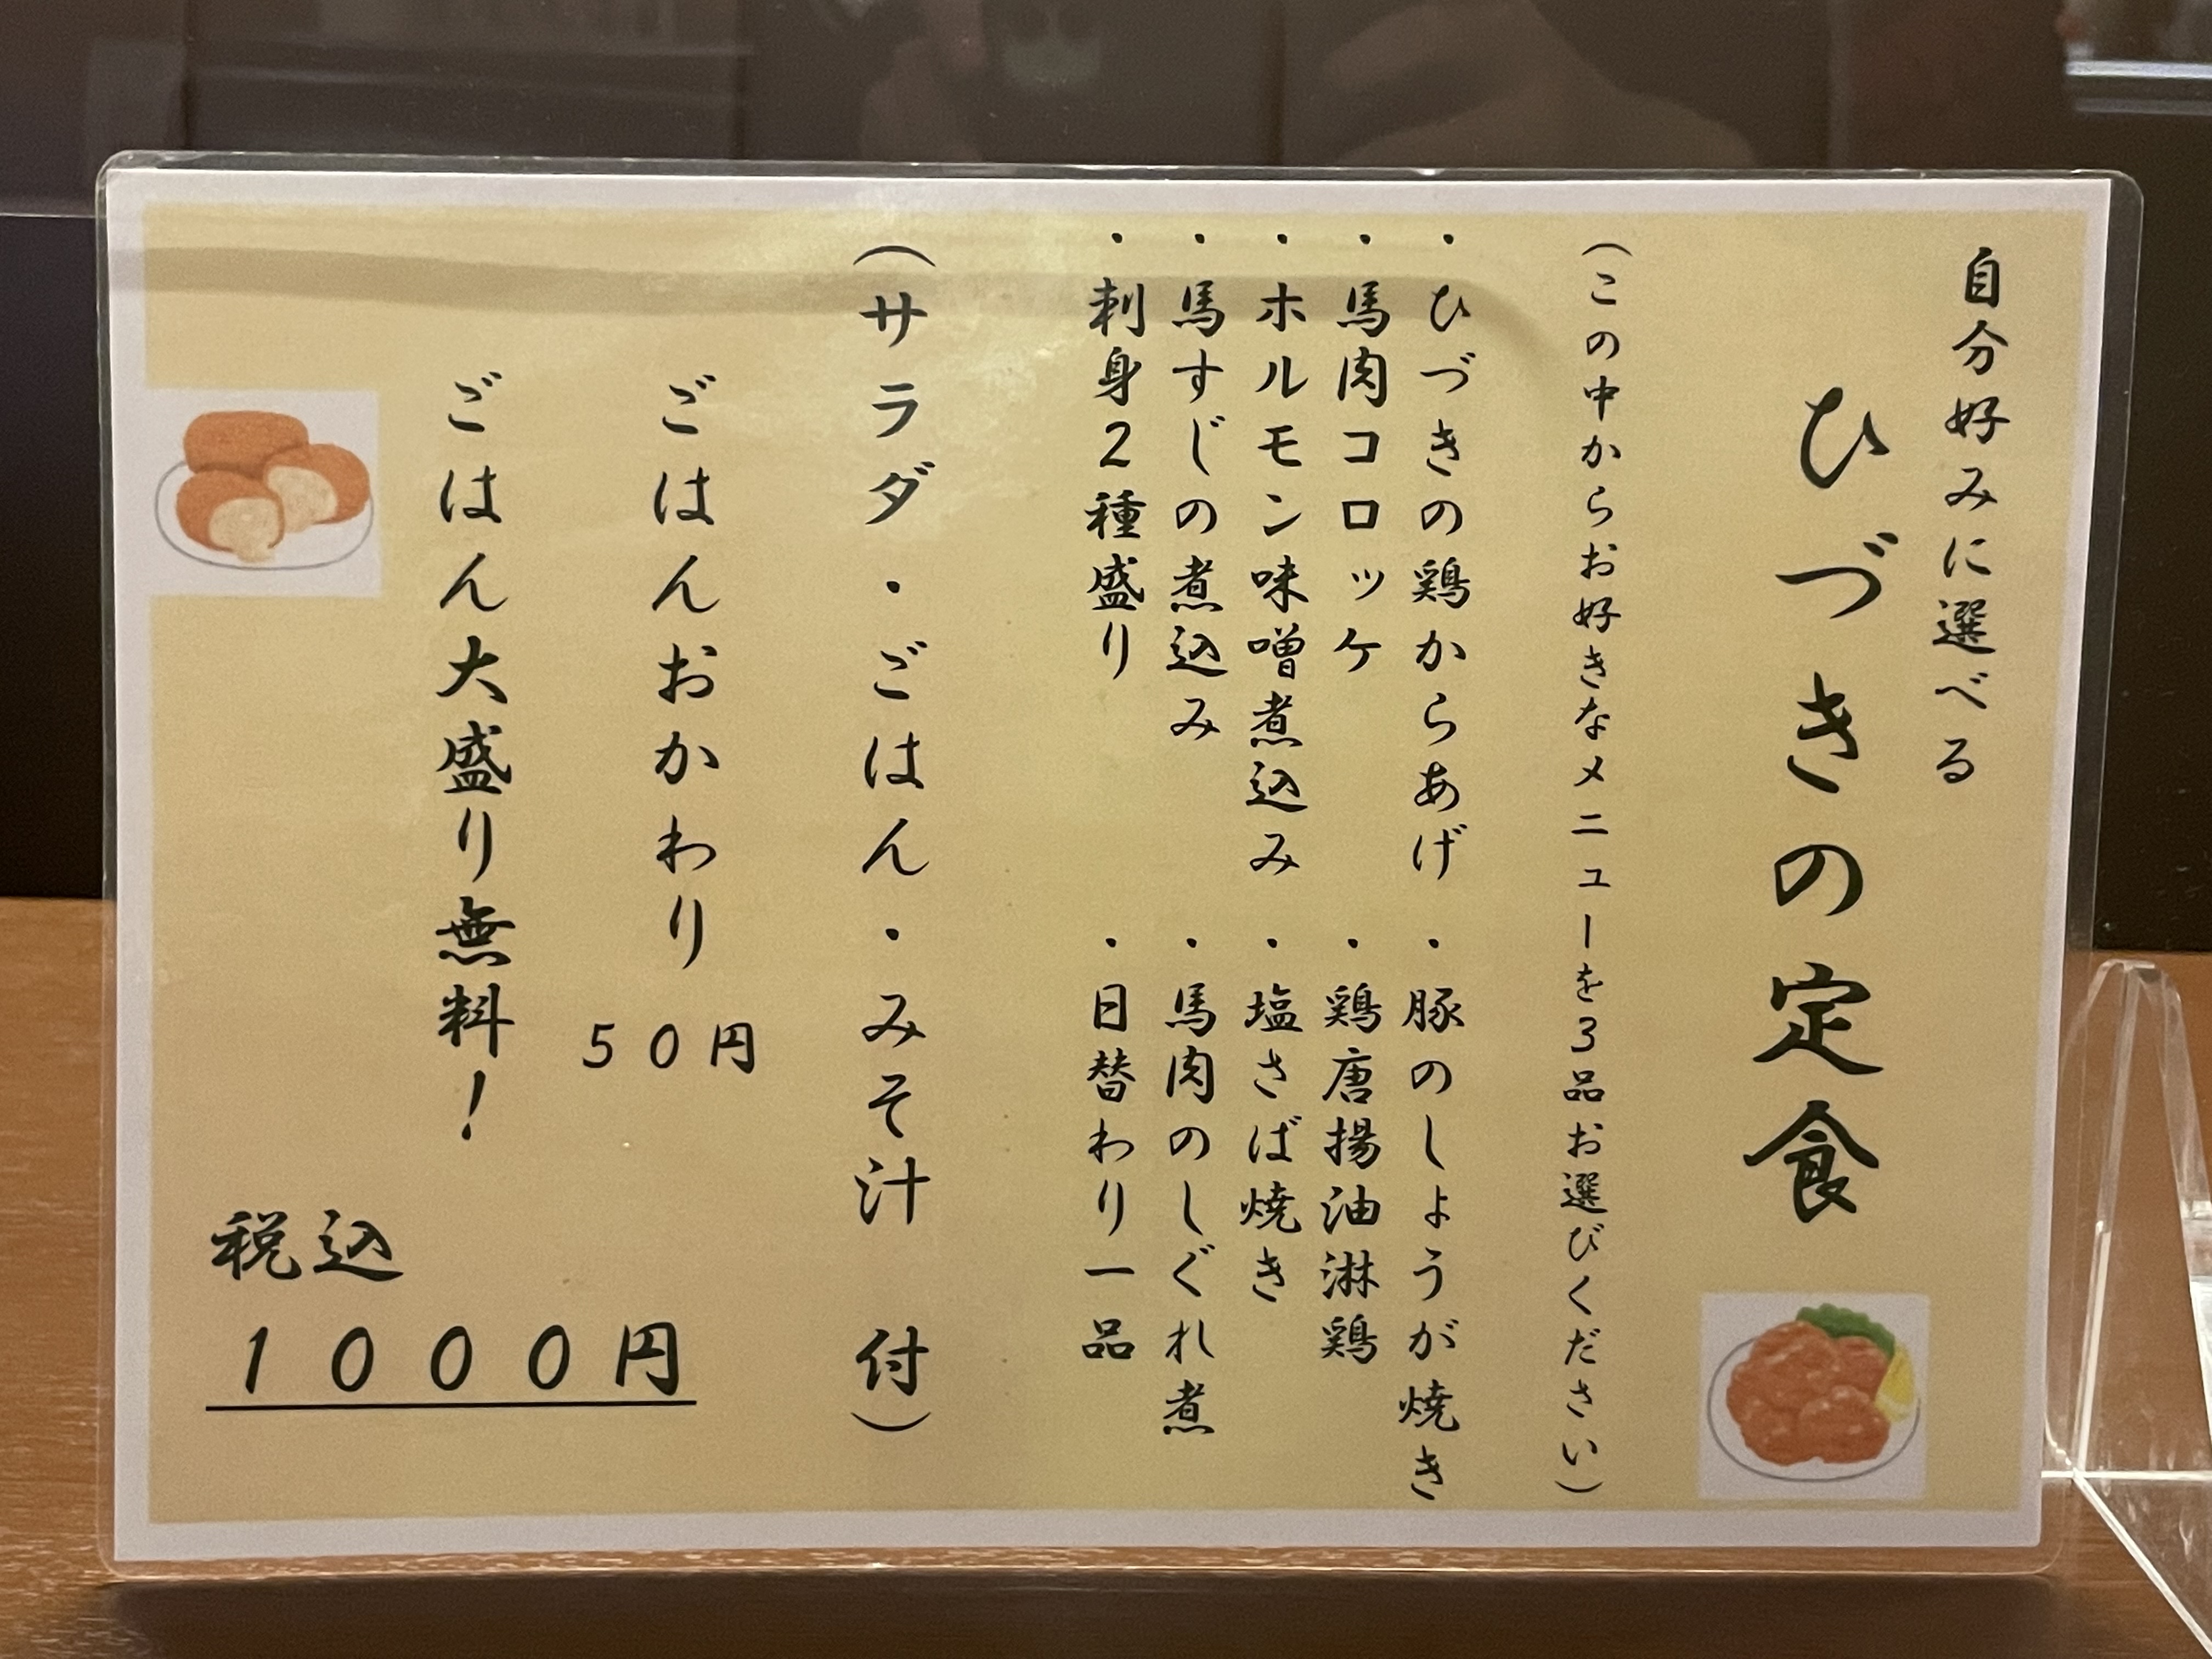 自分好みに選べる
ひづきの定食
（この中からお好きなメニューを3品お選びください）
・ひづきの鶏からあげ
・豚のしょうが焼き
・馬肉コロッケ
・鶏唐揚油淋鶏
・ホルモン味噌煮込み
・塩さば焼き
・馬すじの煮込み
・馬肉のしぐれ煮
・刺身2種盛り
・日替わり一品
（サラダ・ごはん・みそ汁 付）
ごはんおかわり
50円
ごはん大盛り無料！
税込
1000円